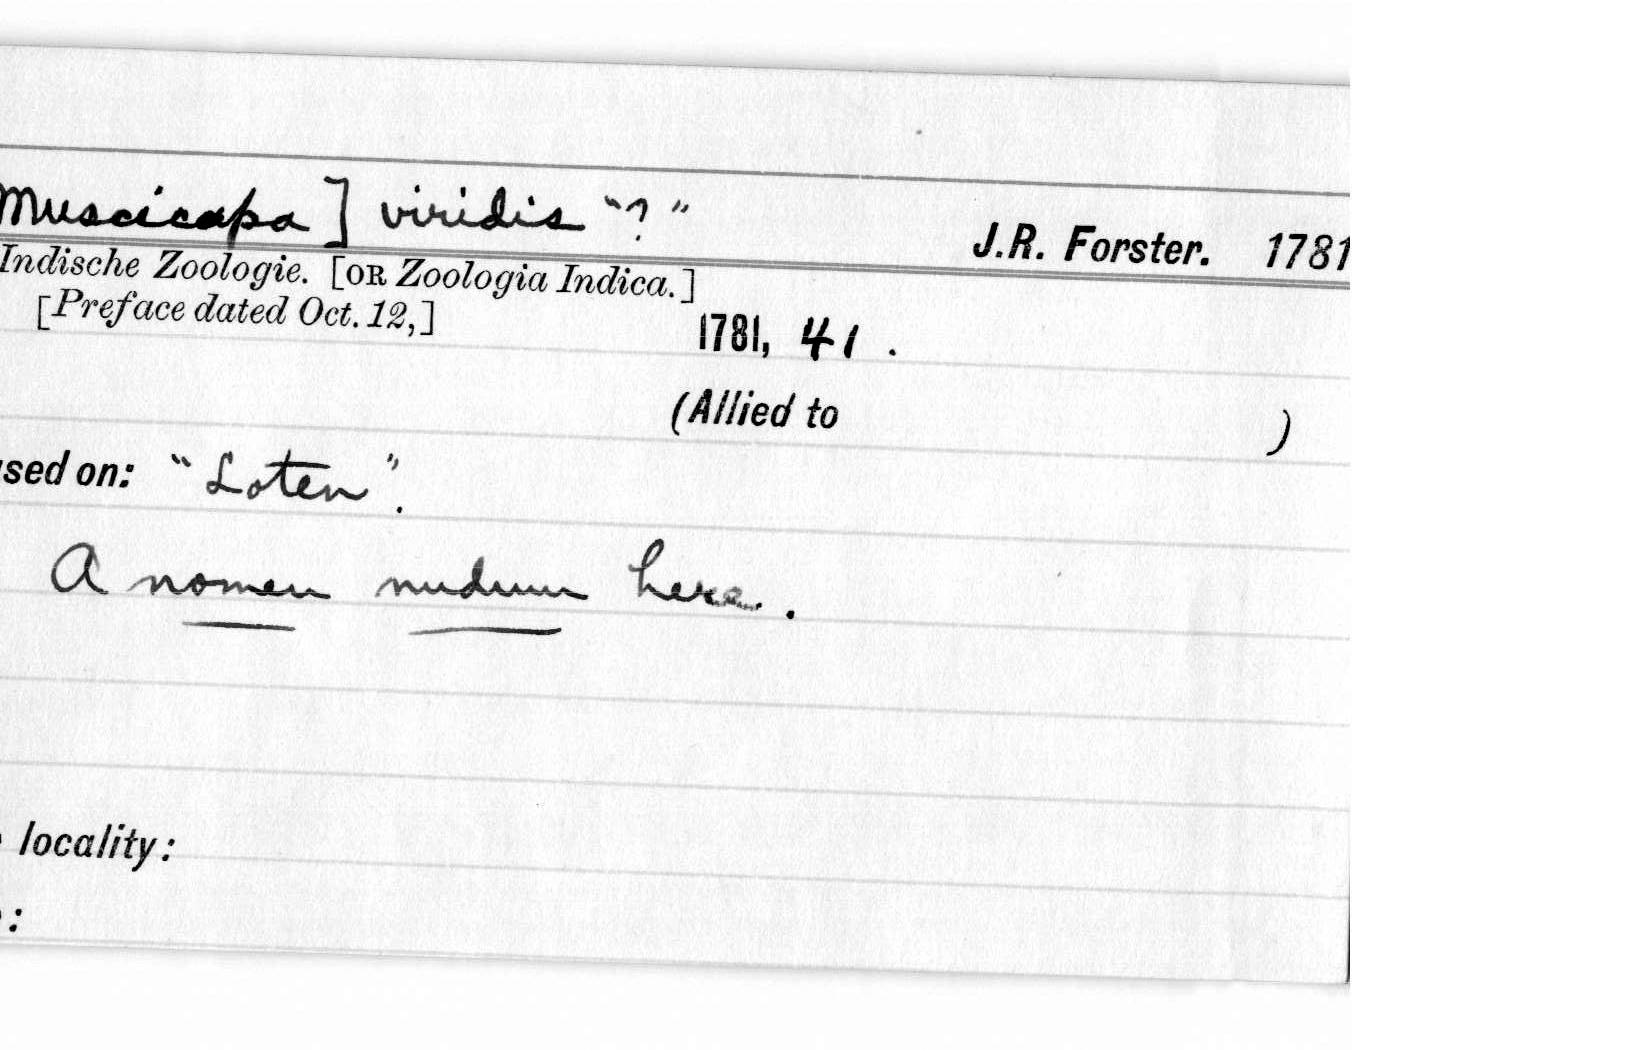 Muscicapa] viridis "?"
J.R. Forster. 1781
Indische Zoologie. [OR Zoologia Indica.]
[Preface dated Oct. 12,]
1781, 41.
(Allied to )
sed on: "Loten".
A nomen nudum here.
locality:
: